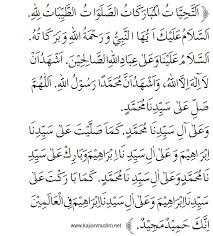 اَلتَّحِيَّاتُ الْمُبَارَكَاتُ الصَّلَوَاتُ الطَّيِّبَاتُ لِلّٰهِ.
اَلسَّلَامُ عَلَيْكَ اَيُّهَا النَّبِيُّ وَرَحْمَةُ اللهِ وَبَرَكَاتُهُ.
اَلسَّلَامُ عَلَيْنَا وَعَلَى عِبَادِ اللهِ الصَّالِحِيْنَ. اَشْهَدُ اَنْ
لَآ اِلٰهَ اِلَّا اللهُ، وَاَشْهَدُ اَنَّ مُحَمَّدًا رَسُوْلُ اللهِ. اَللّٰهُمَّ
صَلِّ عَلَى سَيِّدِنَا مُحَمَّدٍ.
وَعَلَى اٰلِ سَيِّدِنَا مُحَمَّدٍ. كَمَا صَلَّيْتَ عَلَى سَيِّدِنَا
اِبْرَاهِيْمَ وَعَلَى اٰلِ سَيِّدِنَا اِبْرَاهِيْمَ وَبَارِكْ عَلَى سَيِّدِنَا
مُحَمَّدٍ وَعَلَى اٰلِ سَيِّدِنَا مُحَمَّدٍ. كَمَا بَارَكْتَ عَلَى
سَيِّدِنَا اِبْرَاهِيْمَ وَعَلَى اٰلِ سَيِّدِنَا اِبْرَاهِيْمَ فِى الْعَالَمِيْنَ
اِنَّكَ حَمِيْدٌ مَجِيْدٌ.
www.kajianmuslim.net